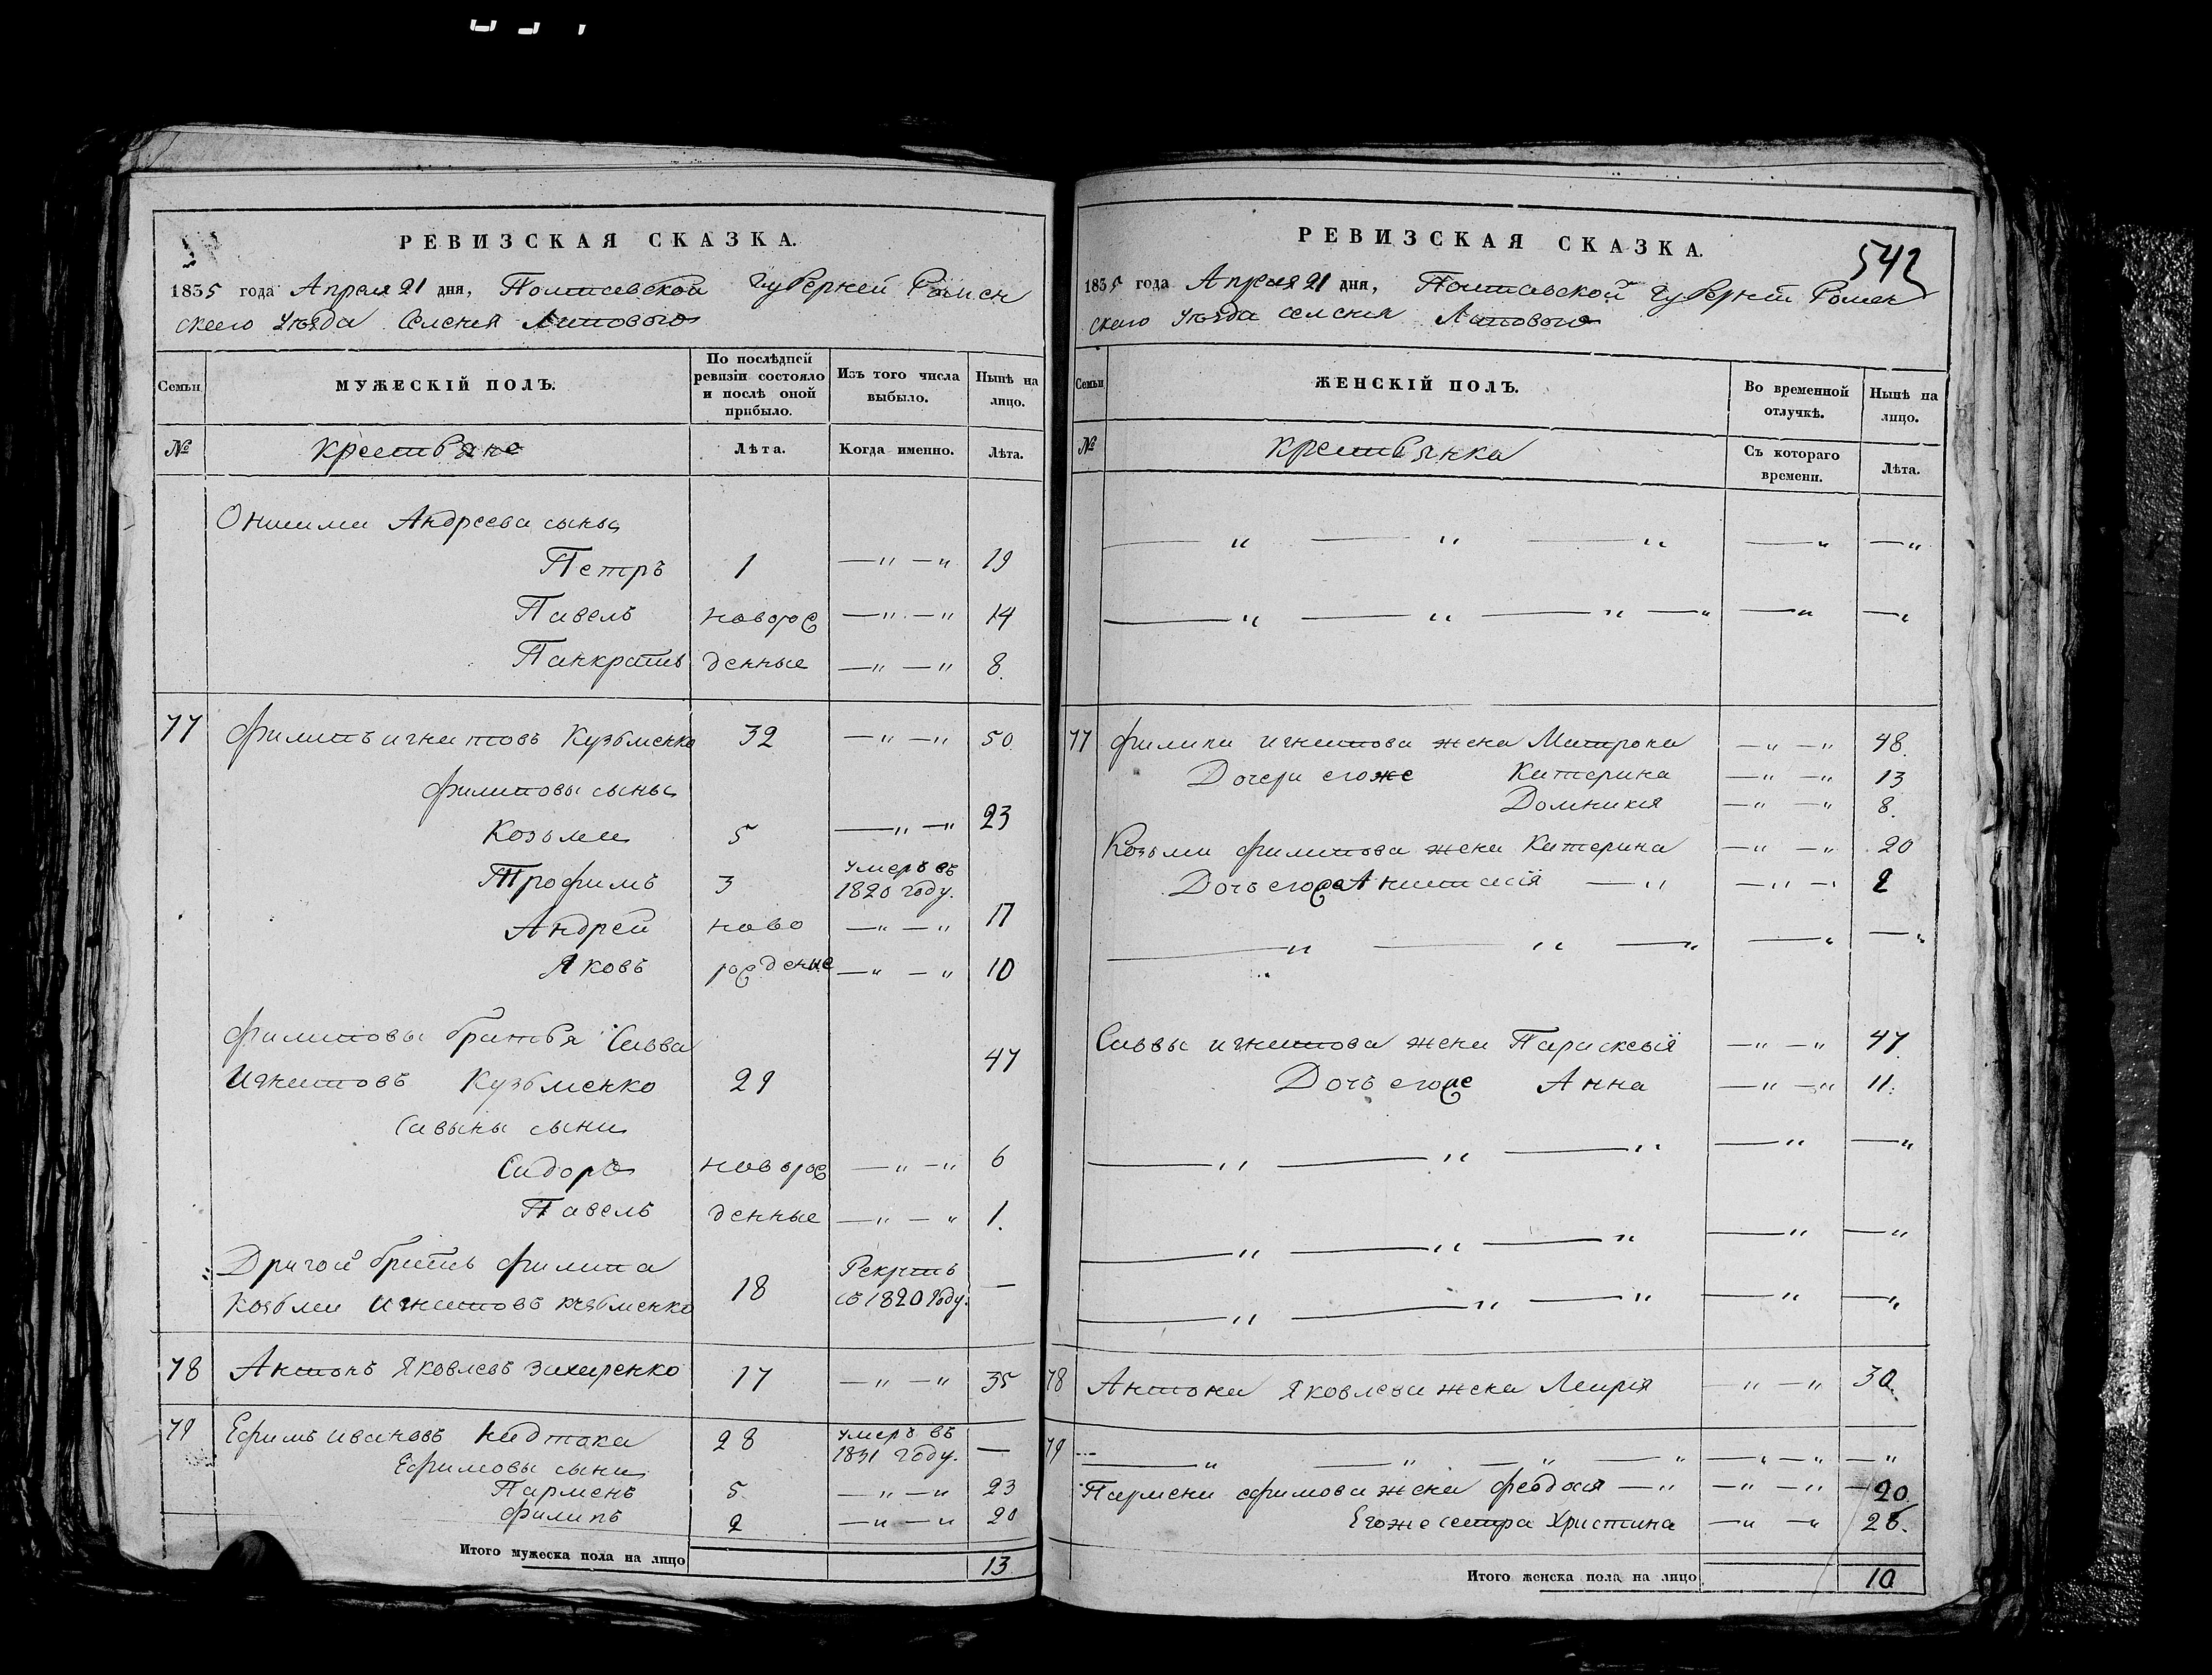 РЕВИЗСКАЯ СКАЗКА.
1835 года Апреля 21 дня, Полтавской Губерней Ромен
ского уѣзда Селенія Липового
Семьи
МУЖЕСКІЙ ПОЛЪ.
По послѣдней ревизіи состояло и послѣ оной прибыло.
Изъ того числа выбыло.
Нынѣ на лицо.
№
крестьяне
Лѣта.
Когда именно.
Лѣта.
Андреева сыны
Петръ 1 —〃—〃 19
Павелъ новорож —〃—〃 14
Панкратъ денные —〃—〃 8.
77 Филипъ игнатовъ Кузьменко 32 —〃—〃 50.
филиповы сыны
Козьма 5 —〃—〃 23
Трофимъ 3 умеръ въ 1820 году.
Андрей ново —〃—〃 17
Яковъ рожденые —〃—〃 10
филиповы братья Савва 47
Игнатовъ Кузьменко 29
Савины сыны
Сидоръ новорож —〃—〃 6
Павелъ денные —〃—〃 1.
Другой братъ филипа
Козьма Игнатовъ кузьменко 18 Рекрутъ съ 1820 году. —
78 Антонъ Яковлевъ Захаренко 17 —〃—〃 35
79 Ефимъ ивановъ 28 умеръ въ 1831 году. —
Ефимовы сыны
Парменъ 5. —〃—〃 23
филипъ 2 —〃—〃 20
Итого мужеска пола на лицо 13
РЕВИЗСКАЯ СКАЗКА.
542
1835 года Апреля 21 дня, Полтавской Губерніи Ромен
ского уѣзда селенія Липового
Семьи
ЖЕНСКІЙ ПОЛЪ.
Во временной отлучкѣ.
Нынѣ на лицо.
№
крестьянка
Съ котораго времени.
Лѣта.
77 филипа игнатова жена Матрона —〃—〃 48.
Дочери егоже Катерина —〃—〃 13
Домникія —〃—〃 8.
Козьми филипова жена Катерина —〃—〃 20
Дочь егоже Анастасія —〃 —〃—〃 2
Саввы игнатова жена Параскевія —〃—〃 47.
Дочь егоже Анна —〃—〃 11.
78 Антона Яковлева жена Марія —〃—〃 30.
79 —〃 —〃 —〃 —〃 —〃—〃 —〃
Пармена ефимова жена феодосія —〃 —〃—〃 20.
Егоже сестра Христина —〃—〃 28.
Итого женска пола на лицо 10